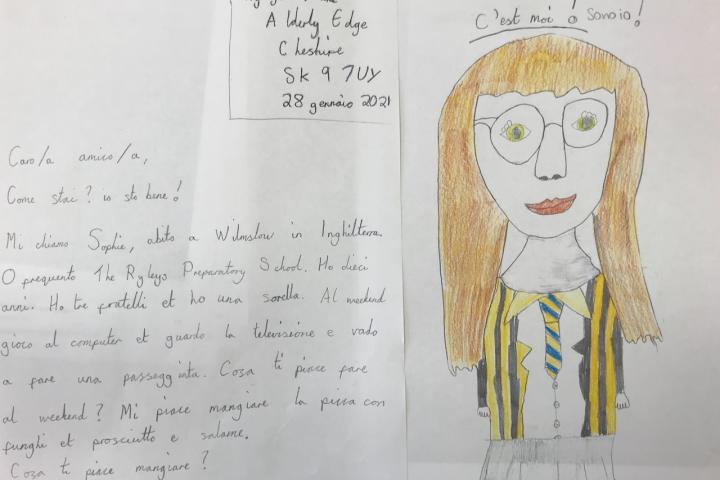 C'est moi! Sonoio!
Alderly Edge
Cheshire
Sk 9 7UY
28 gennaio 2021
Caro/a amico/a,
Come stai? io sto bene!
Mi chiamo Sophie, abito a Wilmslow in Inghilterra.
O frequento The Ryleys Preparatory School. Ho dieci
anni. Ho tre fratelli et ho una sorella. Al weekend
gioco al computer et guardo la televisione e vado
a fare una passeggiata. Cosa ti piace fare
al weekend? Mi piace mangiare la pizza con
funghi et prosciutto e salame.
Coza ti piace mangiare?